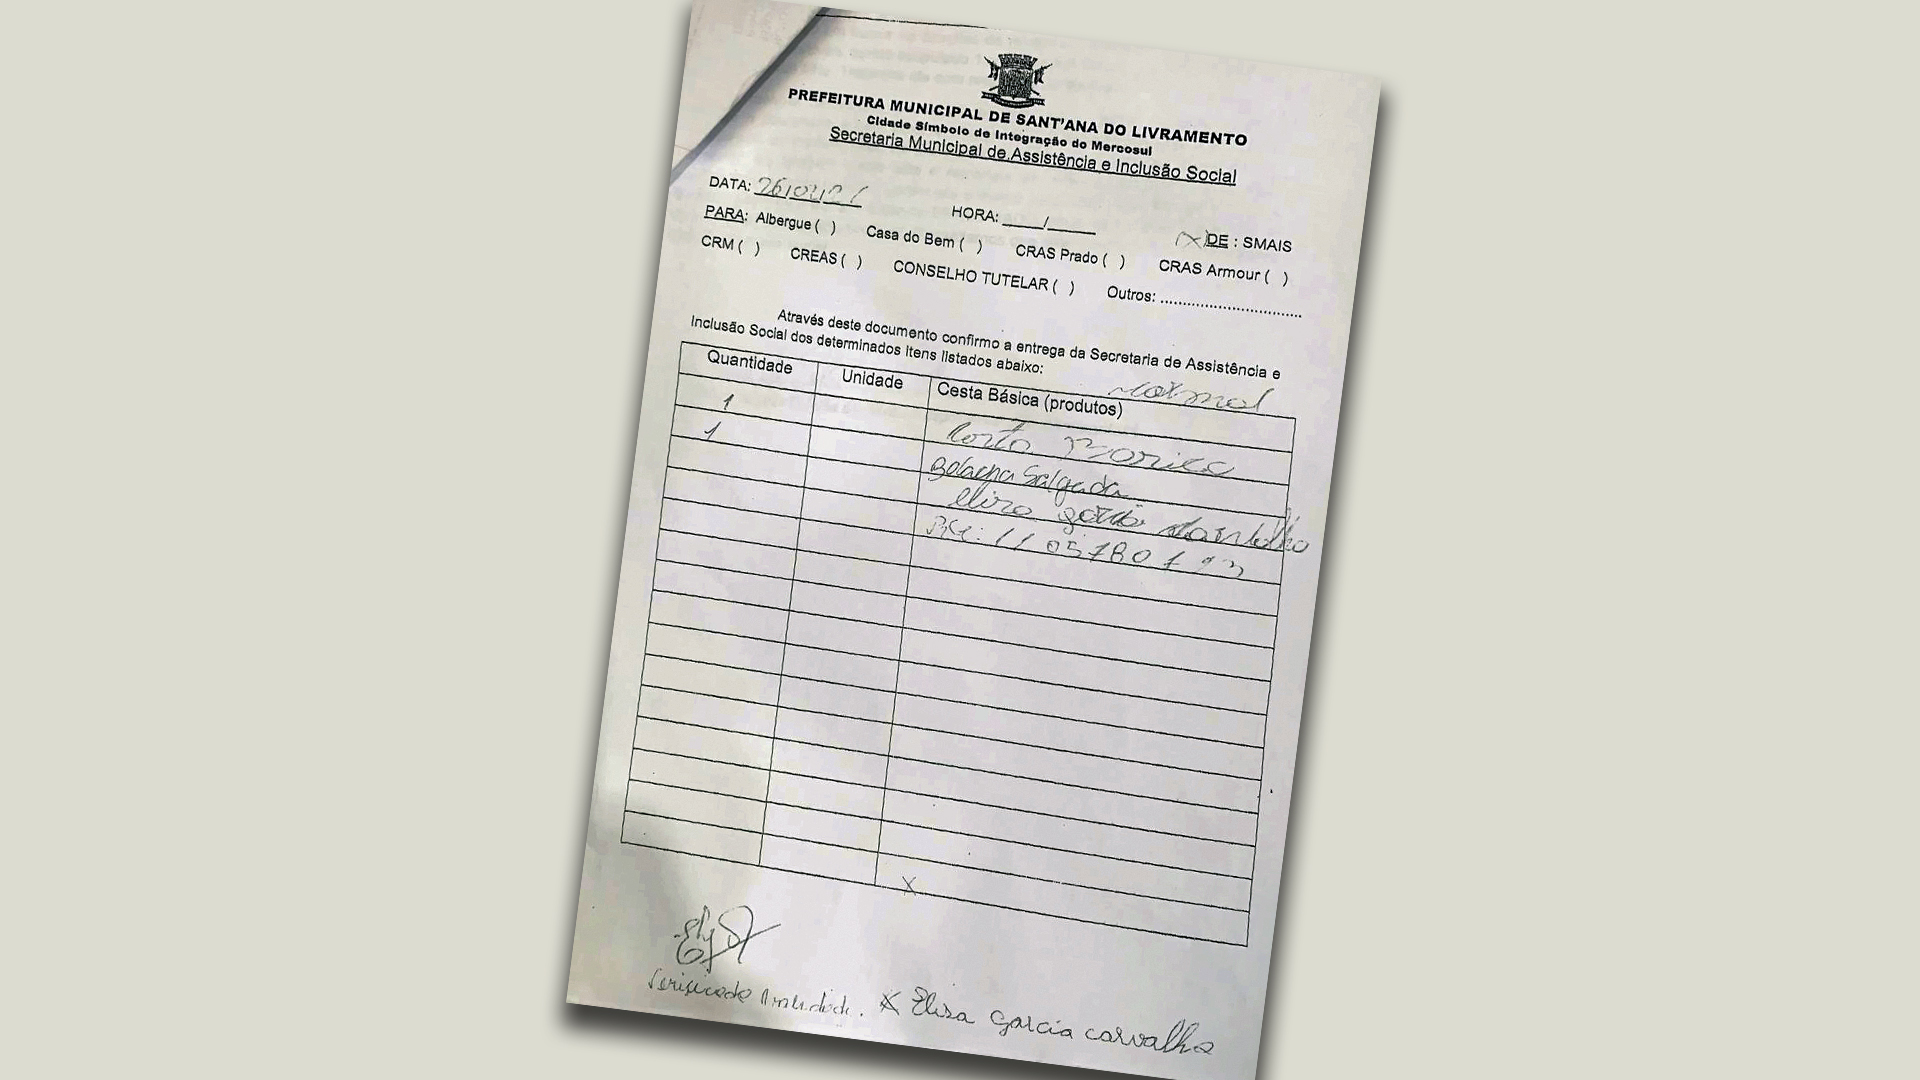 PREFEITURA MUNICIPAL DE SANT'ANA DO LIVRAMENTO
Cidade Símbolo de Integração do Mercosul
Secretaria Municipal de Assistência e Inclusão Social
DATA: HORA: ____/_____ (X) DE : SMAIS
PARA: Albergue ( ) Casa do Bem ( ) CRAS Prado ( ) CRAS Armour ( )
CRM ( ) CREAS ( ) CONSELHO TUTELAR ( ) Outros: ................................
Através deste documento confirmo a entrega da Secretaria de Assistência e
Inclusão Social dos determinados itens listados abaixo:
Quantidade Unidade Cesta Básica (produtos)
1
1 Bolacha Salgada
X
X Elisa Garcia Carvalho